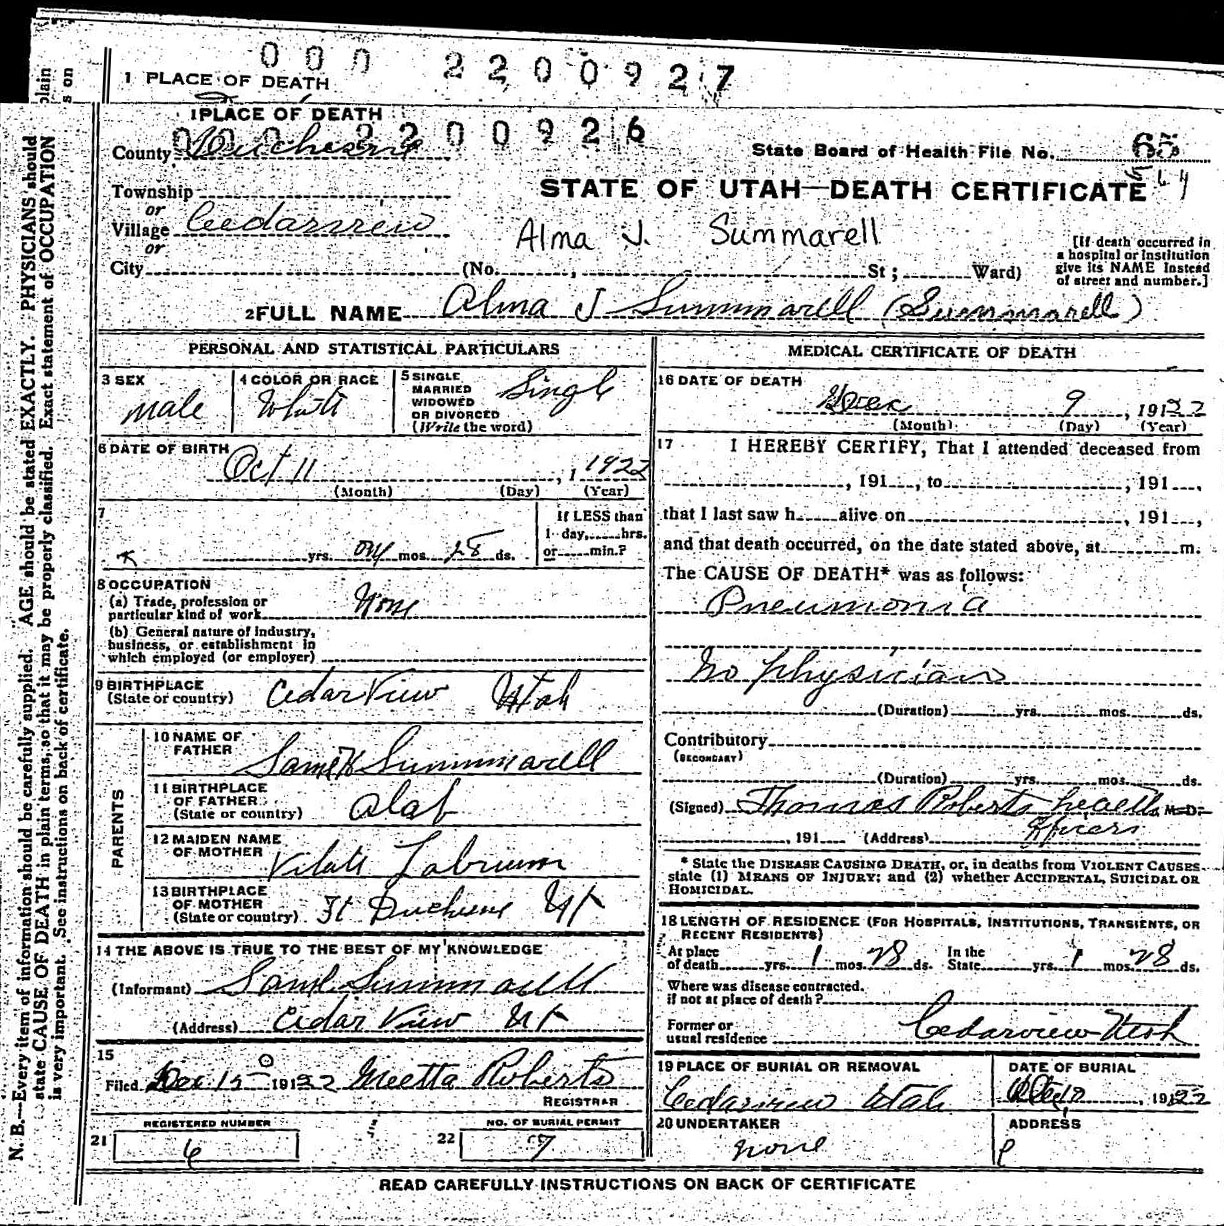 000 2200927
1 PLACE OF DEATH
1 PLACE OF DEATH
000 2200926
County Duchesne
State Board of Health File No. 65
64
Township
or
STATE OF UTAH—DEATH CERTIFICATE
Village Cedarview
or
Alma J. Summarell
City (No. , St ; Ward)
[If death occurred in
a hospital or institution
give its NAME instead
of street and number.]
2 FULL NAME Alma J Summarell (Summarell)
PERSONAL AND STATISTICAL PARTICULARS
3 SEX
male
4 COLOR OR RACE
White
5 SINGLE
MARRIED
WIDOWED
OR DIVORCED
(Write the word)
Single
6 DATE OF BIRTH
Oct 11 , 1922
(Month) (Day) (Year)
7
yrs. one mos. 28 ds.
If LESS than
1 day, hrs.
or min.?
8 OCCUPATION
(a) Trade, profession or
particular kind of work None
(b) General nature of industry,
business, or establishment in
which employed (or employer)
9 BIRTHPLACE
(State or country) Cedar View Utah
PARENTS
10 NAME OF
FATHER
Saml H Summarell
11 BIRTHPLACE
OF FATHER
(State or country)
12 MAIDEN NAME
OF MOTHER
Vilate Labrum
13 BIRTHPLACE
OF MOTHER
(State or country) Ft Duchesne Ut
14 THE ABOVE IS TRUE TO THE BEST OF MY KNOWLEDGE
(Informant) Saml Summarell
(Address) Cedar View Ut
15
Filed Dec 15 1922 Meetta Roberts
REGISTRAR
21 REGISTERED NUMBER
6
22 NO. OF BURIAL PERMIT
7
MEDICAL CERTIFICATE OF DEATH
16 DATE OF DEATH
Dec 9 , 1922
(Month) (Day) (Year)
17 I HEREBY CERTIFY, That I attended deceased from
, 191 , to , 191 ,
that I last saw h alive on , 191 ,
and that death occurred, on the date stated above, at m.
The CAUSE OF DEATH* was as follows:
Pneumonia
No physician
(Duration) yrs. mos. ds.
Contributory
(SECONDARY)
(Duration) yrs. mos. ds.
(Signed) Thomas Roberts health M.D.
officer
, 191 (Address)
* State the DISEASE CAUSING DEATH, or, in deaths from VIOLENT CAUSES
state (1) MEANS OF INJURY; and (2) whether ACCIDENTAL, SUICIDAL OR
HOMICIDAL.
18 LENGTH OF RESIDENCE (FOR HOSPITALS, INSTITUTIONS, TRANSIENTS, OR
RECENT RESIDENTS)
At place
of death yrs. 1 mos. 28 ds.
In the
State yrs. 1 mos. 28 ds.
Where was disease contracted.
if not at place of death?
Former or
usual residence Cedarview Utah
19 PLACE OF BURIAL OR REMOVAL
Cedarview Utah
DATE OF BURIAL
, 1922
20 UNDERTAKER
none
ADDRESS
READ CAREFULLY INSTRUCTIONS ON BACK OF CERTIFICATE
plain
s on
N. B.—Every item of information should be carefully supplied. AGE should be stated EXACTLY. PHYSICIANS should
state CAUSE OF DEATH in plain terms, so that it may be properly classified. Exact statement of OCCUPATION
is very important. See instructions on back of certificate.